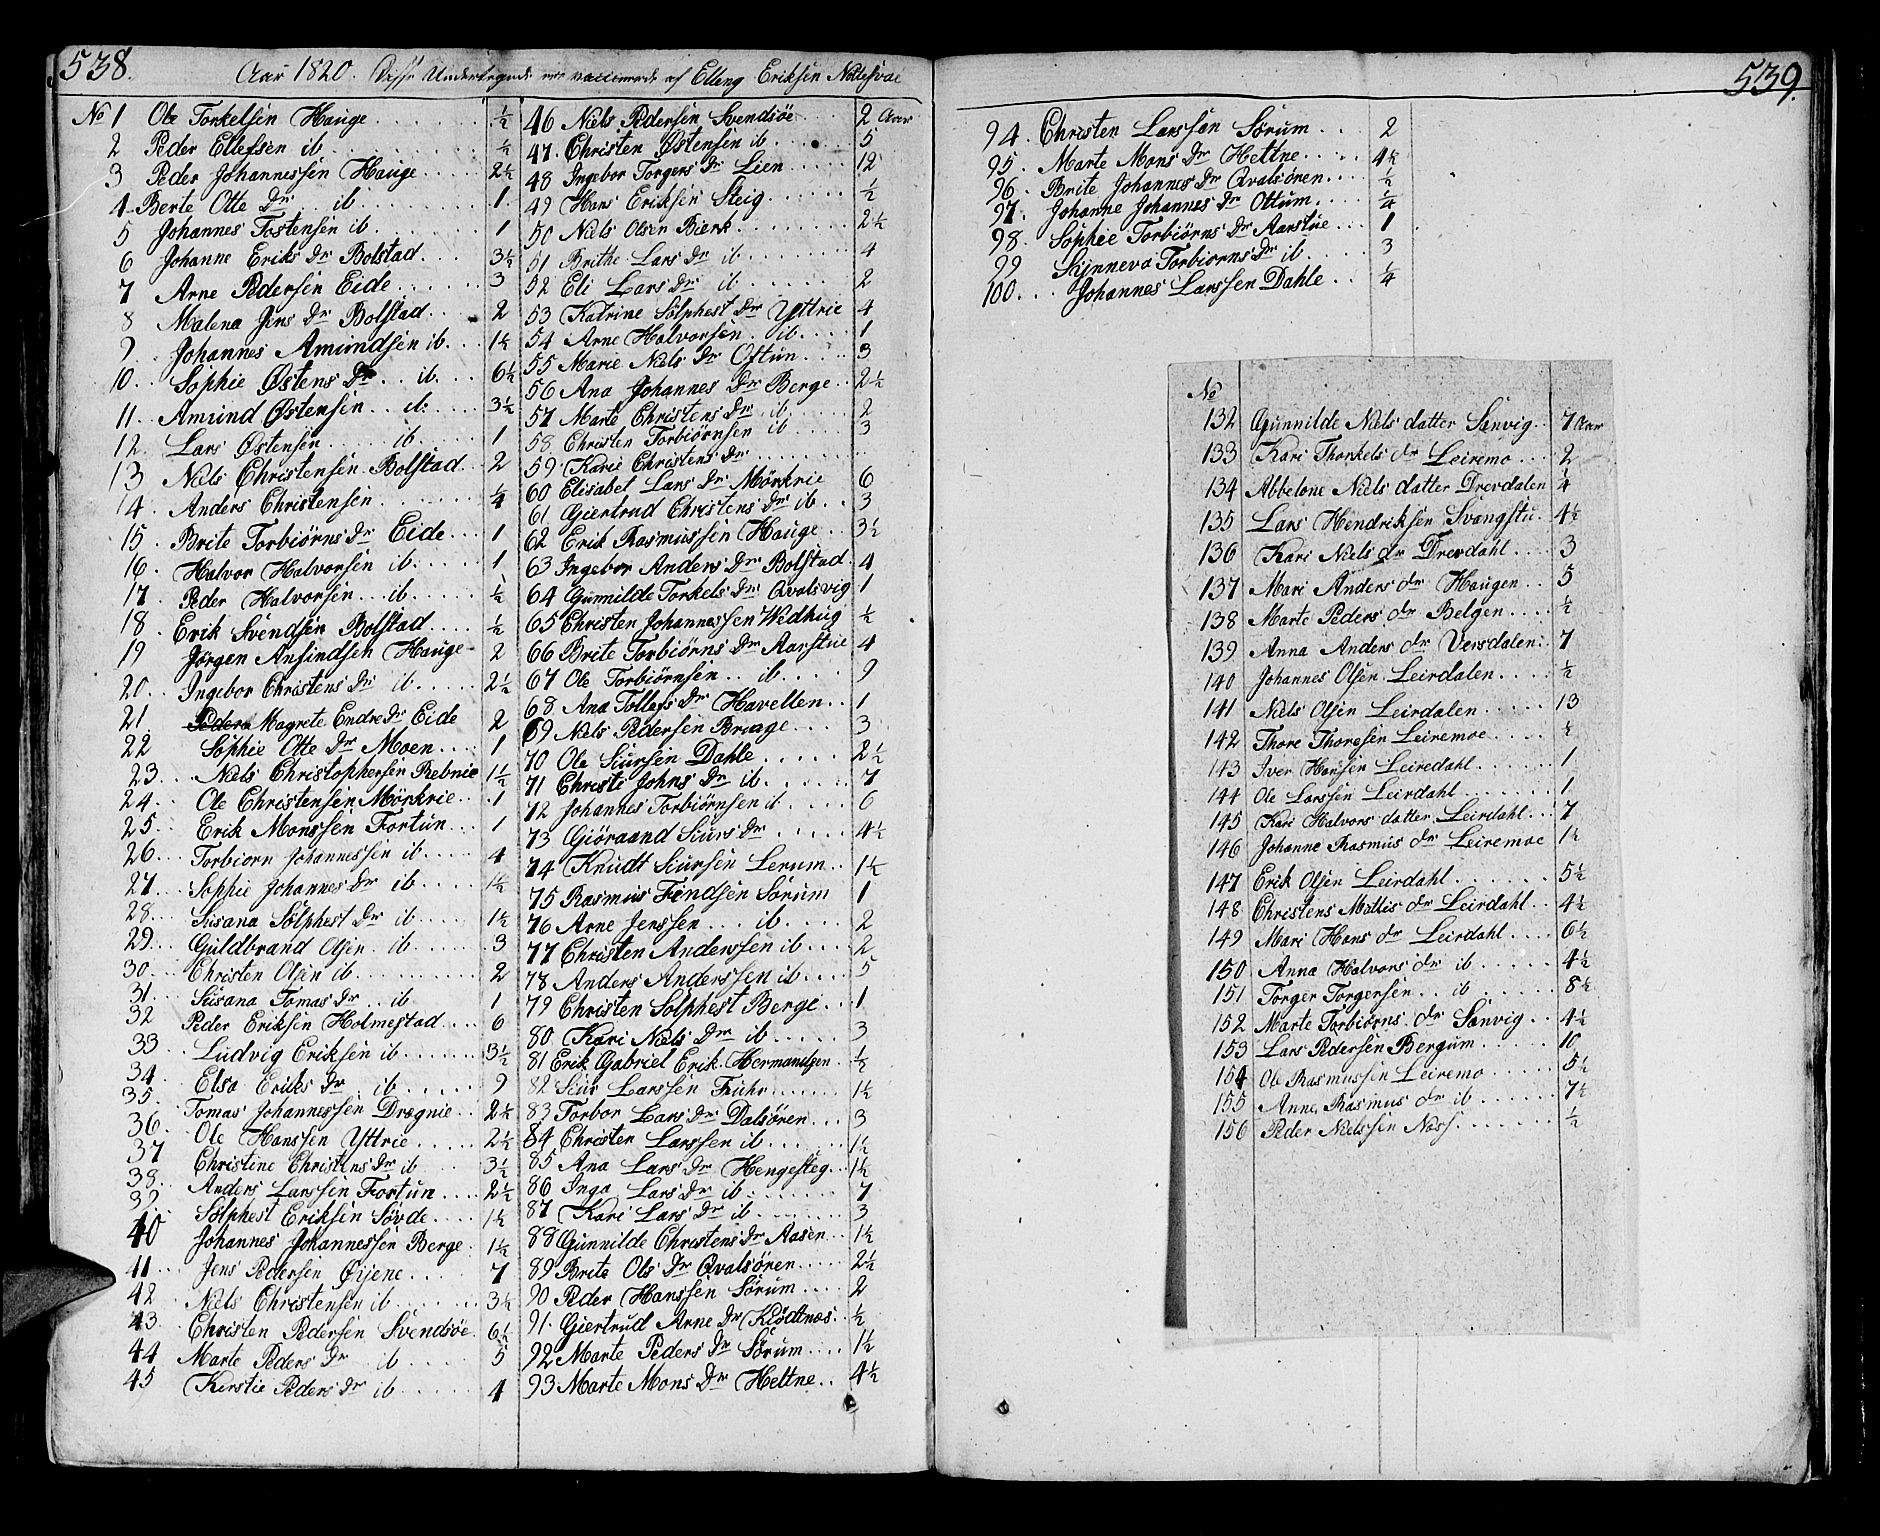 538.
Aar 1820. Disse Undertegnede ere vaccinerede af Elling Eriksen
No 1 Ole Torkelsen Hauge ½
2 Peder Ellefsen ib ½
3 Peder Johannessen Hauge 2½
4 Berte Otte Dr ib 1
5 Johannes Tostensen ib 1
6 Johanne Eriks Dr Bolstad 3½
7 Arne Pedersen Eide 3
8 Malena Jens Dr Bolstad 2
9 Johannes Amundsen ib 1½
10 Sophie Østens Dr ib. 6½
11 Amund Østensen ib: 3½
12 Lars Østensen ib 1
13 Niels Christensen Bolstad 2
14 Anders Christensen ¼
15 Brite Torbiørns Dr Eide 1
16 Halvor Halvorsen ib 1
17 Peder Halvorsen ib ½
18 Erik Svendsen Bolstad ½
19 Jørgen Ansindsen Hauge 2
20 Ingebor Christens Dr ib 2½
21 Magrete Endre Dr Eide 2
22 Sophie Otte Dr Moen 1
23 Niels Christophersen Rebnie 1½
24 Ole Christensen Mörkrie 1
25 Erik Monssen Fortun 1
26 Torbiorn Johannessen ib 4
27 Sophie Johannes Dr ib 1½
28 Susana Sölphest Dr ib 1½
29 Guldbrand Olsen ib 3
30 Christen Olsen ib 2
31 Susana Tomas Dr ib 1
32 Peder Eriksen Holmestad 6
33 Ludvig Eriksen ib 3½
34 Elsa Eriks Dr ib 9
35 Tomas Johannessen Drægnie 2½
36 Ole Hanssen Yttrie 2½
37 Christine Christens Dr ib 3½
38 Anders Larssen Fortun 2½
39 Sölphest Eriksen Søvde 1½
40 Johannes Johannessen Berge 1½
41 Jens Pedersen Øijene 7
42 Niels Christensen ib 3½
43 Christen Pedersen Svendsöe 6½
44 Marte Peders Dr ib 5
45 Kirstie Peders Dr ib 4
46 Niels Pedersen Svendsöe 2 Aar
47 Christen Østensen ib 5
48 Ingebor Torgers Dr Lien 12
49 Hans Eriksen Steig ½
50 Niels Olsen Bierk 2½
51 Brithe Lars Dr ib 4
52 Eli Lars Dr ib 2
53 Katrine Sölphest Dr Yttrie 4
54 Arne Halvorsen ib 1
55 Marie Niels Dr Oftun 3
56 Ana Johannes Dr Berge 2½
57 Marte Christens Dr ib 2
58 Christen Torbiörnsen ib 3
59 Karie Christens Dr
60 Elisabet Lars Dr Mörkrie 6
61 Giertrud Christens Dr ib 3
62 Erik Rasmussen Hauge 3½
63 Ingebor Anders Dr Bolstad 4
64 Gunnilde Torkels Dr Qvalsvig 1
65 Christen Johannessen Wedhug ½
66 Brite Torbiörns Dr Aarstue 4
67 Ole Torbiörnsen ib 9
68 Ana Tollefs Dr Havellen 1
69 Niels Pedersen Bruage 3
70 Ole Siursen Dahle 2½
71 Christi Johns Dr ib 7
72 Johannes Torbiörnsen ib 6
73 Giöraand Siurs Dr 4½
74 Knudt Siursen Lerum 1½
75 Rasmus Findsen Sörum 1
76 Arne Jenssen ib 2
77 Christen Anderssen ib 2
78 Anders Anderssen ib 5
79 Christen Sölphest Berge 1
80 Kari Niels Dr ib 3
81 Erik Gabriel Erik Hermandsen ½
82 Siur Larssen Fuhr 1½
83 Torbor Lars Dr Dalsören 3
84 Christen Larssen ib 1½
85 Ana Lars Dr Hengesteg 1½
86 Inga Lars Dr ib 7
87 Kari Lars Dr ib 3
88 Gunnilde Christens Dr Aasen 1½
89 Brite Ols Dr Qvalsören 2½
90 Peder Hanssen Sörum 2
91 Giertrud Arne Dr Klödtnæs ½
92 Marte Peders Dr Sörum 1½
93 Marte Mons Dr Heltne 4½
539.
94. Christen Larssøn Sørum 2
95. Marte Mons Dr Hettne 4½
96. Brite Johannes Dr Qvalsören ½
97. Johanne Johannes Dr Ottum ¼
98. Sophie Torbiörns Dr Aarstue 1
99 Skjnneva Torbiorns Dr ib 3
100 Johannes Larssen Dahle ¼
No
132 Gunnilde Niels datter Sanvig 7 Aar
133 Kari Thorkels dr Leiremo 2
134 Abbelone Niels datter Drevdalen ¼
135 Lars Hendriksen Svangstu 4½
136 Kari Niels dr Drevdahl 3
137 Mari Anders dr Haugen 5
138 Marte Peders dr Belgen ½
139 Anna Anders dr Versdalen 7
140 Johannes Olsen Leirdalen ½
141 Niels Olsen Leirdalen 13
142 Thore Thoresen Leiremoe ½
143 Iver Hansen Leiredahl 1
144 Ole Larssen Leirdahl 1
145 Kari Halvors datter Leirdahl 7
146 Johanne Rasmus dr Leiremoe 1½
147 Erik Olsen Leirdahl 5½
148 Christens Mattis dr Leirdahl 4½
149 Mari Hans dr Leirdahl 6½
150 Anna Halvors dr ib 4½
151 Torger Torgersen ib 8½
152 Marte Torbiörns dr Sanvig 4½
153 Lars Pedersen Bergum 10
154 Ole Rasmussen Leiremo 5½
155 Anne Rasmus dr ib 7½
156 Peder Nielssen Næss ½